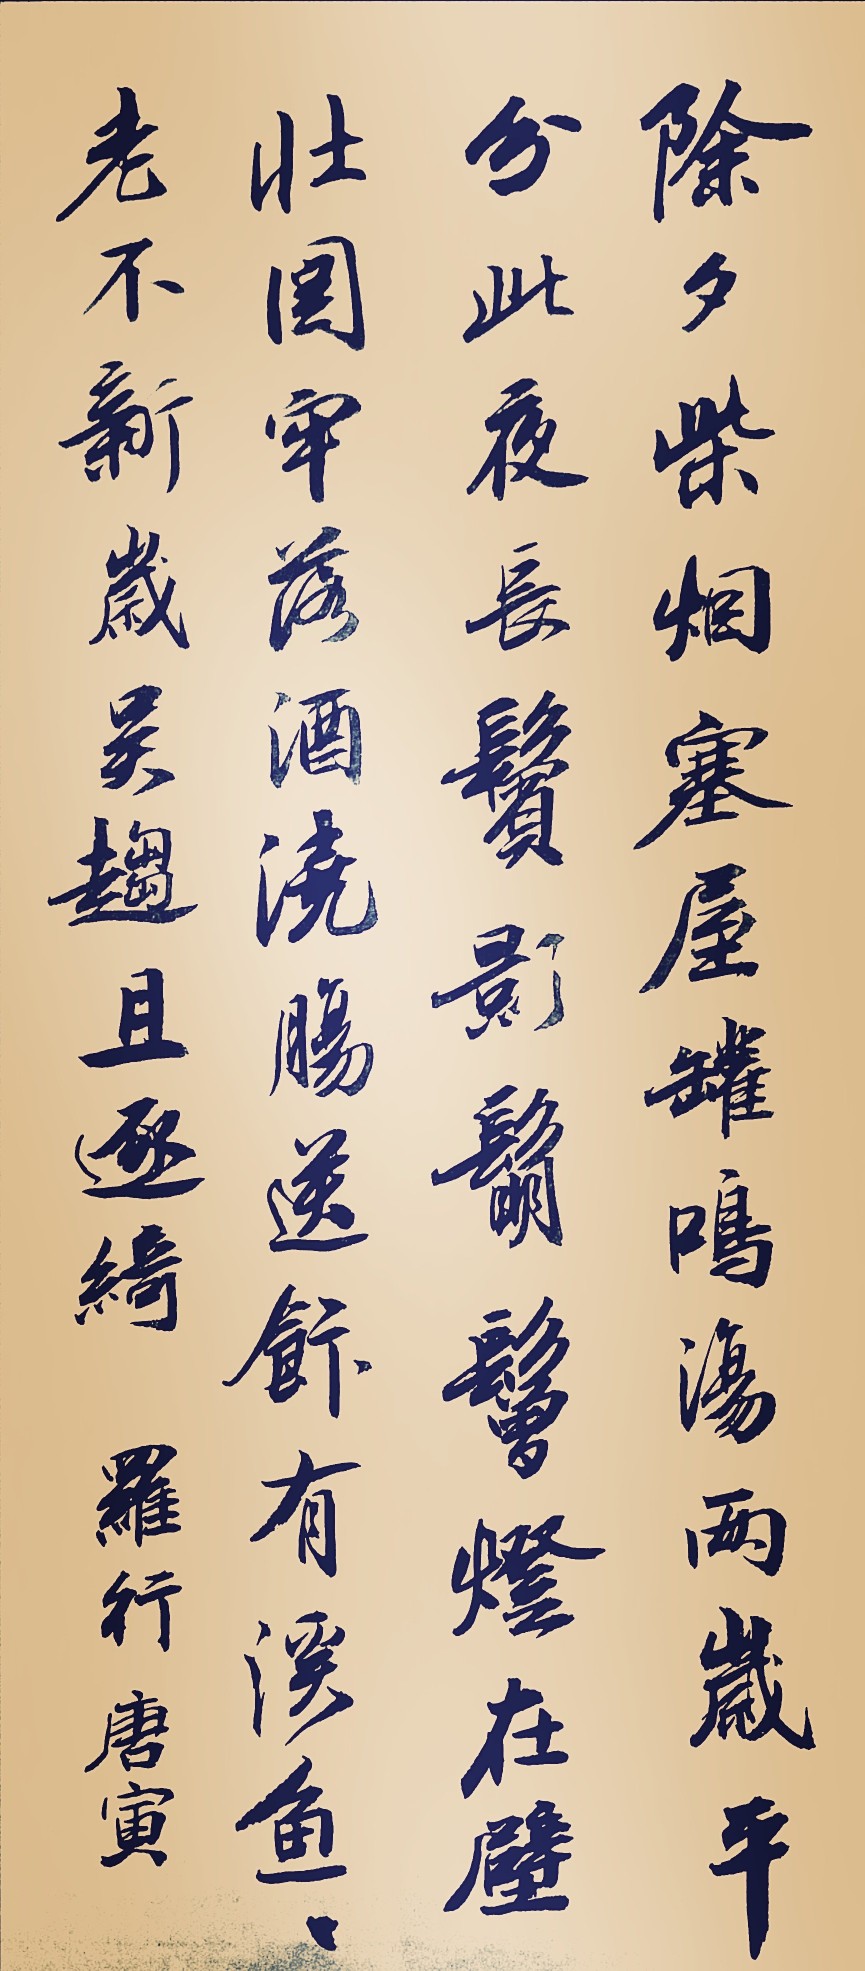 除夕柴烟塞屋罐鳴湯两歲平
分此夜長鬢影鬅鬙燈在壁
壯圖牢落酒澆腸送飰有溪魚
老不新歲吴趨且逐綺羅行唐寅